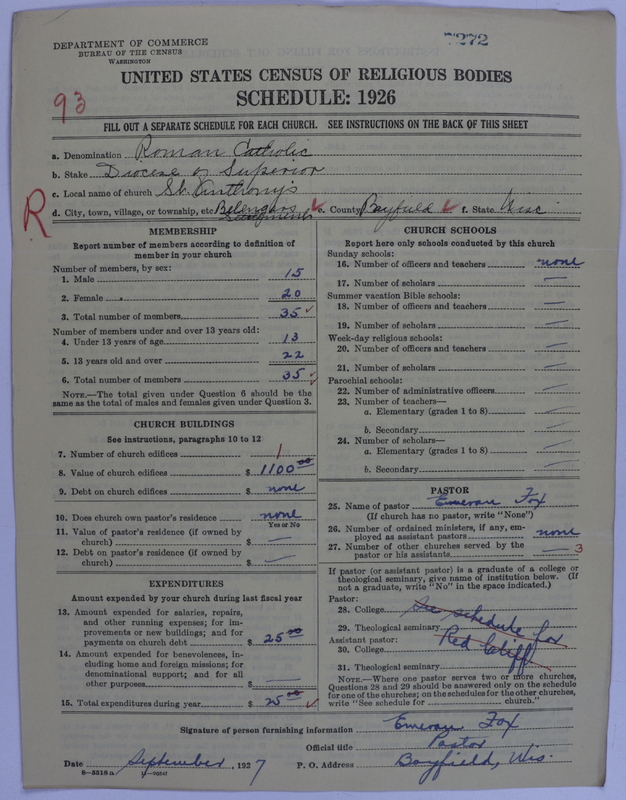 DEPARTMENT OF COMMERCE
BUREAU OF THE CENSUS
WASHINGTON
UNITED STATES CENSUS OF RELIGIOUS BODIES
SCHEDULE: 1926
93
FILL OUT A SEPARATE SCHEDULE FOR EACH CHURCH. SEE INSTRUCTIONS ON THE BACK OF THIS SHEET
a. Denomination Roman Catholic
b. Stake Diocese of Superior
c. Local name of church St. Anthony's
R
d. City, town, village, or township, etc. e. County Bayfield f. State Wisc
MEMBERSHIP
Report number of members according to definition of member in your church
Number of members, by sex:
1. Male 15
2. Female 20
3. Total number of members 35
Number of members under and over 13 years old:
4. Under 13 years of age 13
5. 13 years old and over 22
6. Total number of members 35
NOTE.—The total given under Question 6 should be the
same as the total of males and females given under Question 3.
CHURCH BUILDINGS
See instructions, paragraphs 10 to 12
7. Number of church edifices 1
8. Value of church edifices $ 1100 00
9. Debt on church edifices $ none
10. Does church own pastor's residence none
Yes or No
11. Value of pastor's residence (if owned by
church) $ —
12. Debt on pastor's residence (if owned by
church) $ —
EXPENDITURES
Amount expended by your church during last fiscal year
13. Amount expended for salaries, repairs,
and other running expenses; for im-
provements or new buildings; and for
payments on church debt $ 25 00
14. Amount expended for benevolences, in-
cluding home and foreign missions; for
denominational support; and for all
other purposes $ —
15. Total expenditures during year $ 25 00
CHURCH SCHOOLS
Report here only schools conducted by this church
Sunday schools:
16. Number of officers and teachers none
17. Number of scholars —
Summer vacation Bible schools:
18. Number of officers and teachers —
19. Number of scholars —
Week-day religious schools:
20. Number of officers and teachers —
21. Number of scholars —
Parochial schools:
22. Number of administrative officers —
23. Number of teachers—
a. Elementary (grades 1 to 8) —
b. Secondary —
24. Number of scholars—
a. Elementary (grades 1 to 8) —
b. Secondary —
PASTOR
25. Name of pastor Emeran Fox
(If church has no pastor, write "None")
26. Number of ordained ministers, if any, em-
ployed as assistant pastors none
27. Number of other churches served by the
pastor or his assistants — 3
If pastor (or assistant pastor) is a graduate of a college or
theological seminary, give name of institution below. (If
not a graduate, write "No" in the space indicated.)
Pastor:
28. College See schedule for
29. Theological seminary
Assistant pastor: Red Cliff
30. College
31. Theological seminary
NOTE.—Where one pastor serves two or more churches,
Questions 28 and 29 should be answered only on the schedule
for one of the churches; on the schedules for the other churches,
write "See schedule for church."
Signature of person furnishing information Emeran Fox
Official title Pastor
Date September, 1927 P. O. Address Bayfield, Wis.